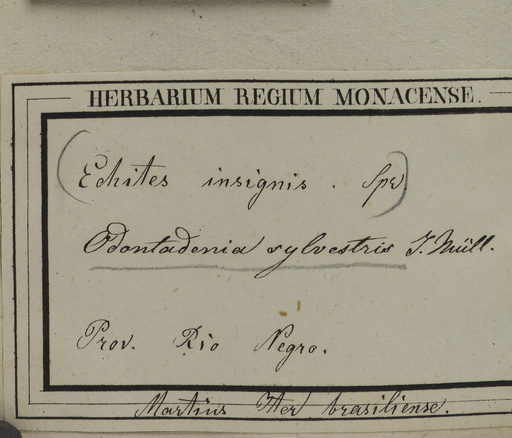 HERBARIUM REGIUM MONACENSE.
(Echites insignis. Spr.)
Odontadenia sylvestris J. Müll.
Prov. Rio Negro.
Martius Iter brasiliense.